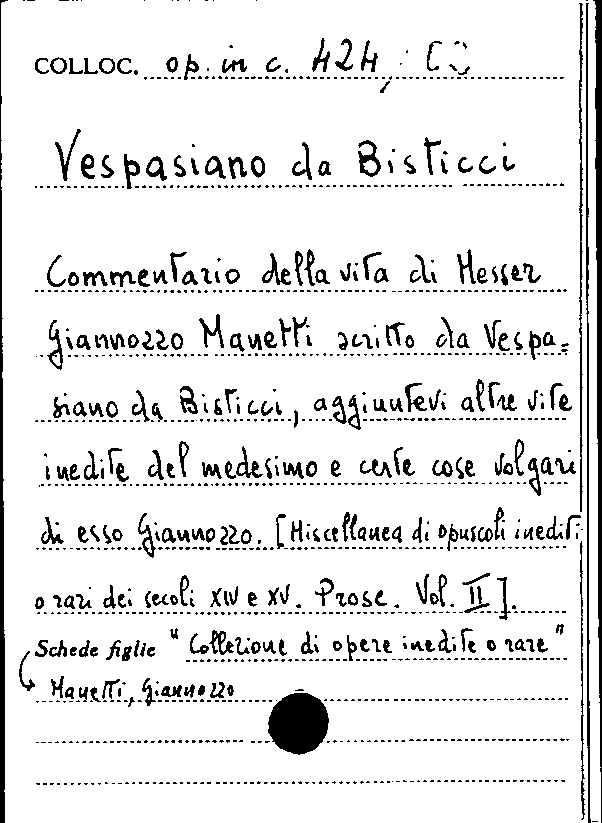 COLLOC. op. in c. 424,
Vespasiano da Bisticci
Commentario della vita di Messer
Giannozzo Manetti scritto da Vespa=
siano da Bisticci, aggiuntevi altre vite
inedite del medesimo e certe cose volgari
di esso Giannozzo. [Miscellanea di opuscoli inediti
o rari dei secoli XIV e XV. Prose. Vol. II].
Schede figlie "Collezione di opere inedite o rare"
Manetti, Giannozzo